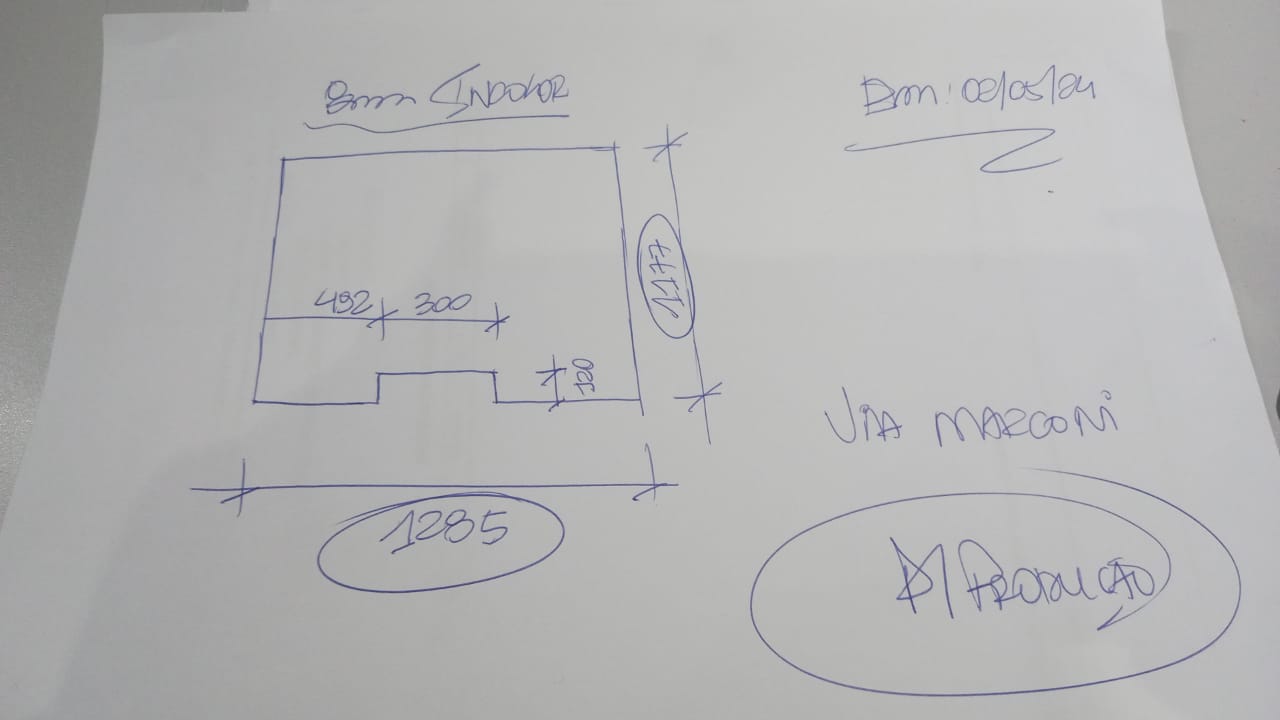 8mm INCOLOR
Em: 02/05/24
492 300
120
1177
1285
VIA MARCONI
P/ PRODUÇÃO